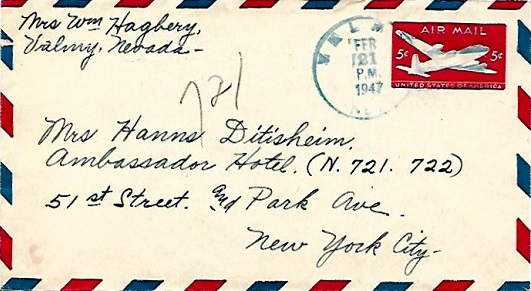 Mrs Wm Hagbery,
Valmy, Nevada -
VALMY
FEB
21
P.M.
1947
NEV.
AIR MAIL
5¢ 5¢
UNITED STATES OF AMERICA
721
Mrs Hanns Ditisheim,
Ambassador Hotel. (N. 721. 722)
51 st Street. and Park Ave.
New York City-